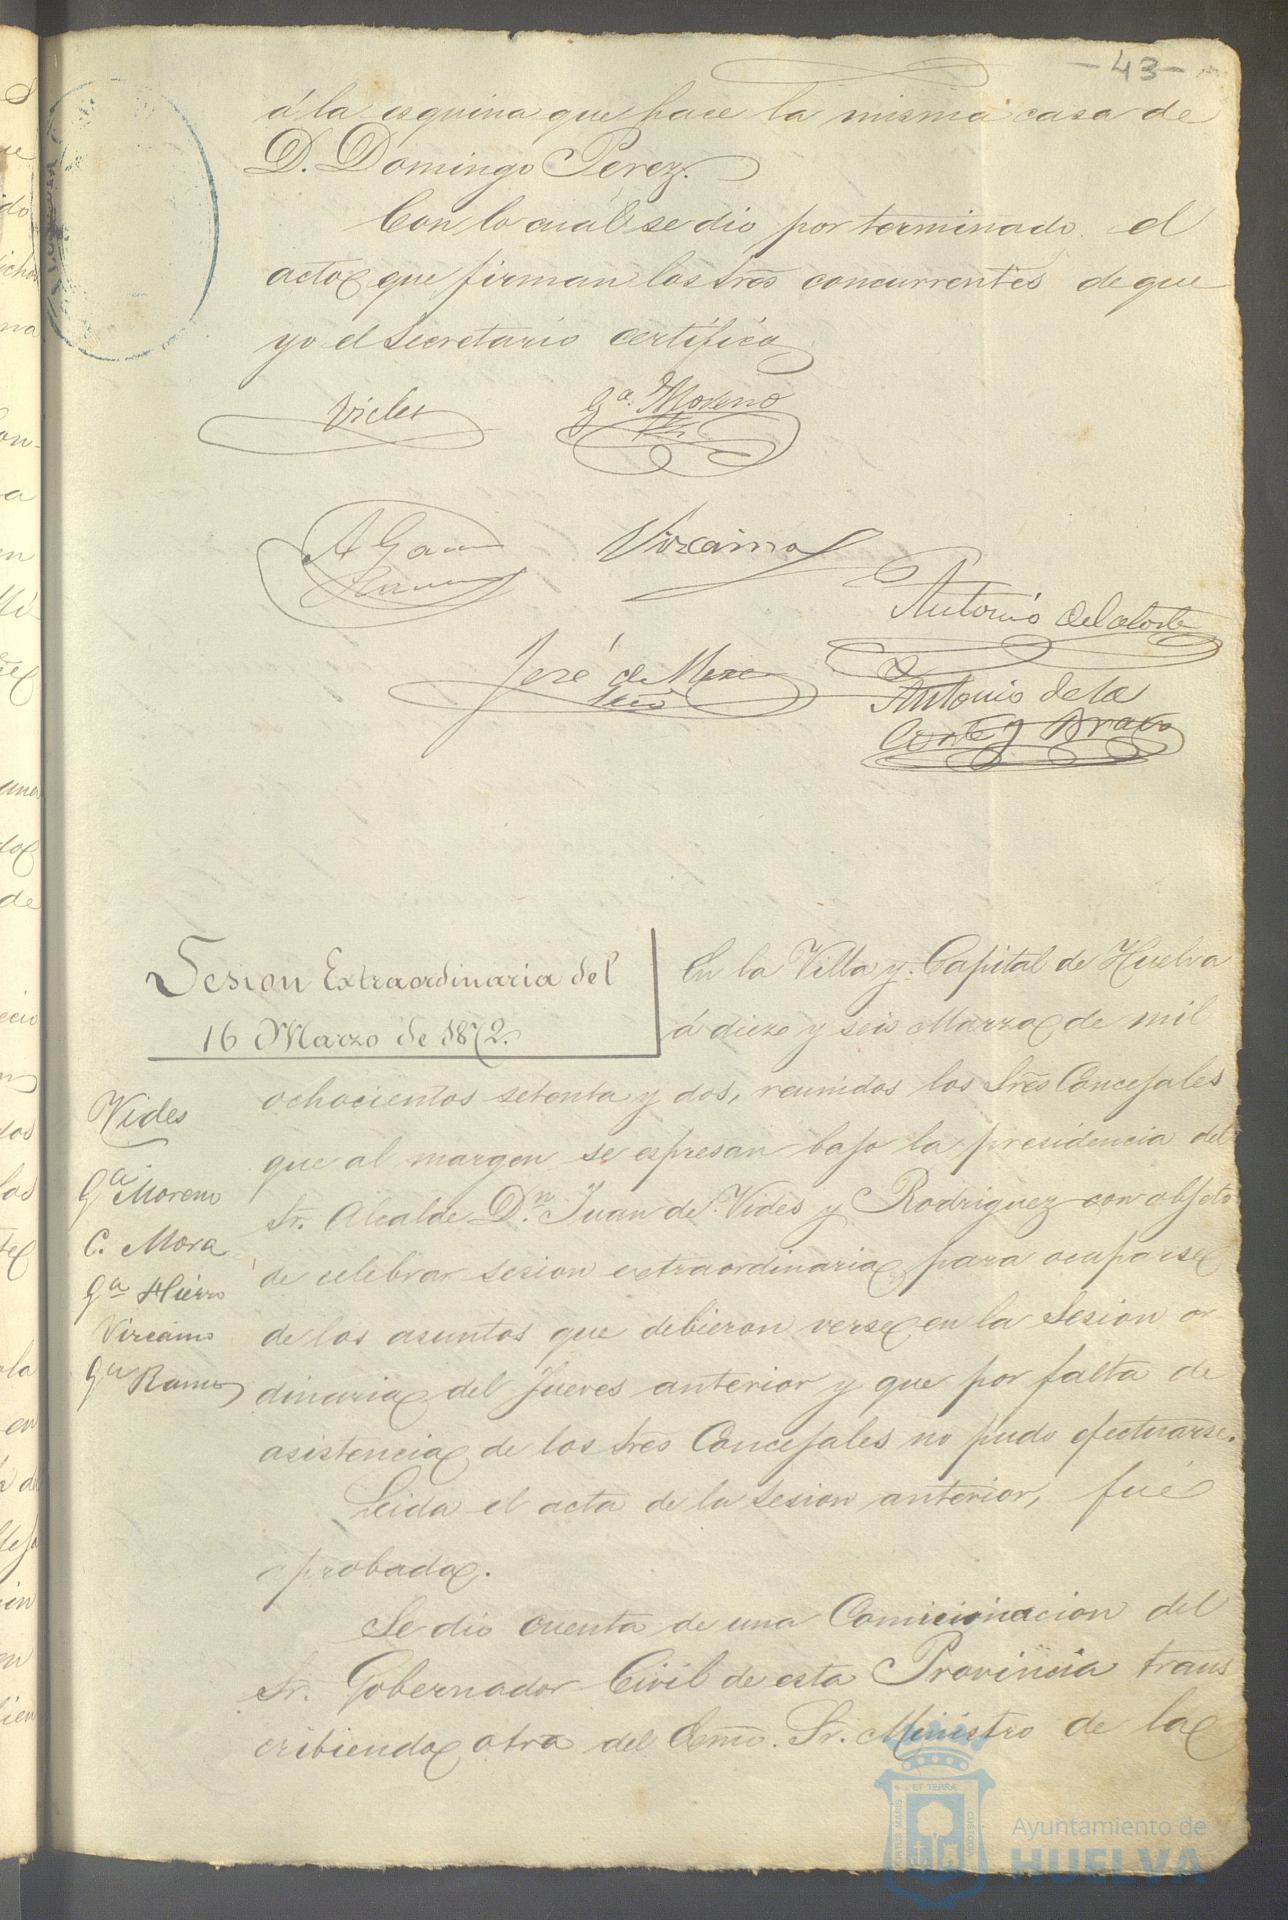 -43-
á la esquina que hace la misma casa de
D. Domingo Perez.
Con lo cuál se dió por terminado el
acto que firman los Sres concurrentes de que
yo el Secretario certifico
Vides
Gª. Moreno
A Garcia
Ramos
Vizcaino
Antonio de la Corte
José de Mora
Srio
Antonio de la
Corte y Bravo
Sesion Extraordinaria del
16 Marzo de 1872.
En la Villa y Capital de Huelva
á diez y seis Marzo de mil
ochocientos setenta y dos, reunidos los Sres Concejales
que al margen se espresan bajo la presidencia del
Sr. Alcalde Dn. Juan de Vides y Rodriguez con objeto
de celebrar sesion extraordinaria para ocuparse
de los asuntos que debieron verse en la Sesion or-
dinaria del Jueves anterior y que por falta de
asistencia de los Sres Concejales no pudo efectuarse.
Leida el acta de la sesion anterior, fué
aprobada.
Se dió cuenta de una Comunicacion del
Sr. Gobernador Civil de esta Provincia trans
cribiendo otra del Exmo. Sr. Ministro de la
Vides
Gª Moreno
C. Mora
Gª Hierro
Vizcaino
Gª Ramos
ET TERRA
PORTUS MARIS
CUSTODIA
Ayuntamiento de
HUELVA